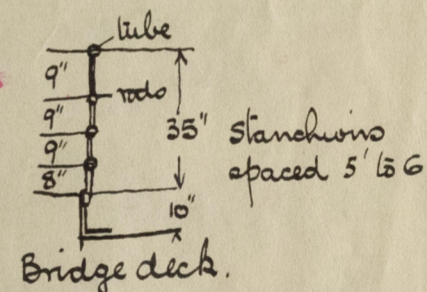 tube
9"
rods
9"
35"
stanchions
9"
spaced 5' to 6
8"
10"
Bridge deck.